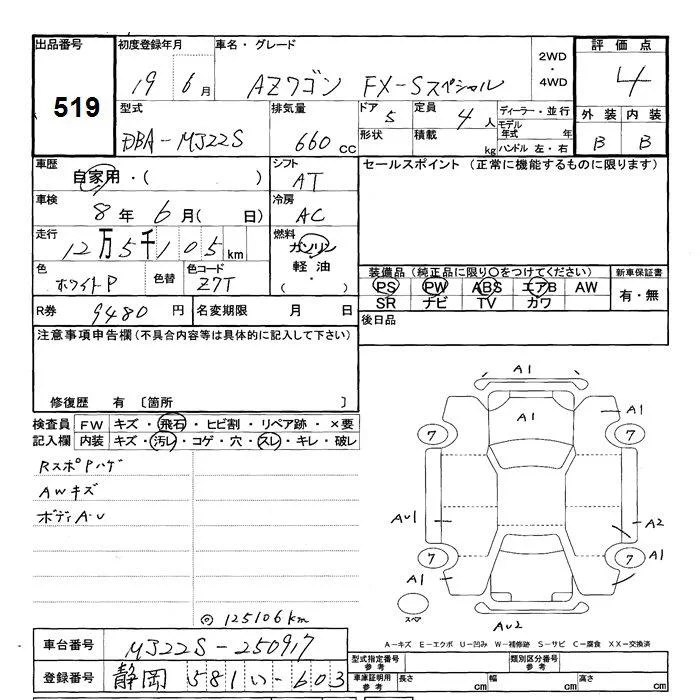 出品番号 初度登録年月 車名・グレード 2WD・4WD 評価点
519 19 6月 AZワゴン FX-Sスペシャル 4
型式 排気量 ドア 5 定員 4人 ディーラー・並行 外装 内装
DBA-MJ22S 660cc 形状 積載 kg モデル年式 年 B B
ハンドル 左・右
車歴 シフト セールスポイント (正常に機能するものに限ります)
自家用・( ) AT
車検 冷房
8年 6月( 日) AC
走行 燃料
12万5千105km ガソリン
軽油
( )
色 色替 色コード 装備品 (純正品に限り○をつけてください) 新車保証書
ホワイトP Z7T PS PW ABS エアB AW 有・無
SR ナビ TV カワ
R券 9480円 名変期限 月 日 後日品
注意事項申告欄(不具合内容等は具体的に記入して下さい)
修復歴 有 〔箇所 〕
検査員 FW キズ・飛石・ヒビ割・リペア跡・×要
記入欄 内装 キズ・汚レ・コゲ・穴・スレ・キレ・破レ
RスポPハゲ
AWキズ
ボディA・U
◎125106km
A1
A1
A1
A1
7
7
AU1
A2
7
7
A1
A1
スペア
AU2
A-キズ E-エクボ U-凹み W-補修跡 S-サビ C-腐食 XX-交換済
車台番号 MJ22S-250917 型式指定番号 参考 類別区分番号 参考
登録番号 静岡 581 い -603 車庫証明用 参考 長さ cm 幅 cm 高さ cm